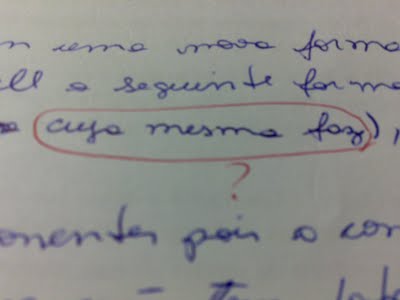 uma nova forma
a seguinte forma
cuja mesma faz),
?
onentes pois o con